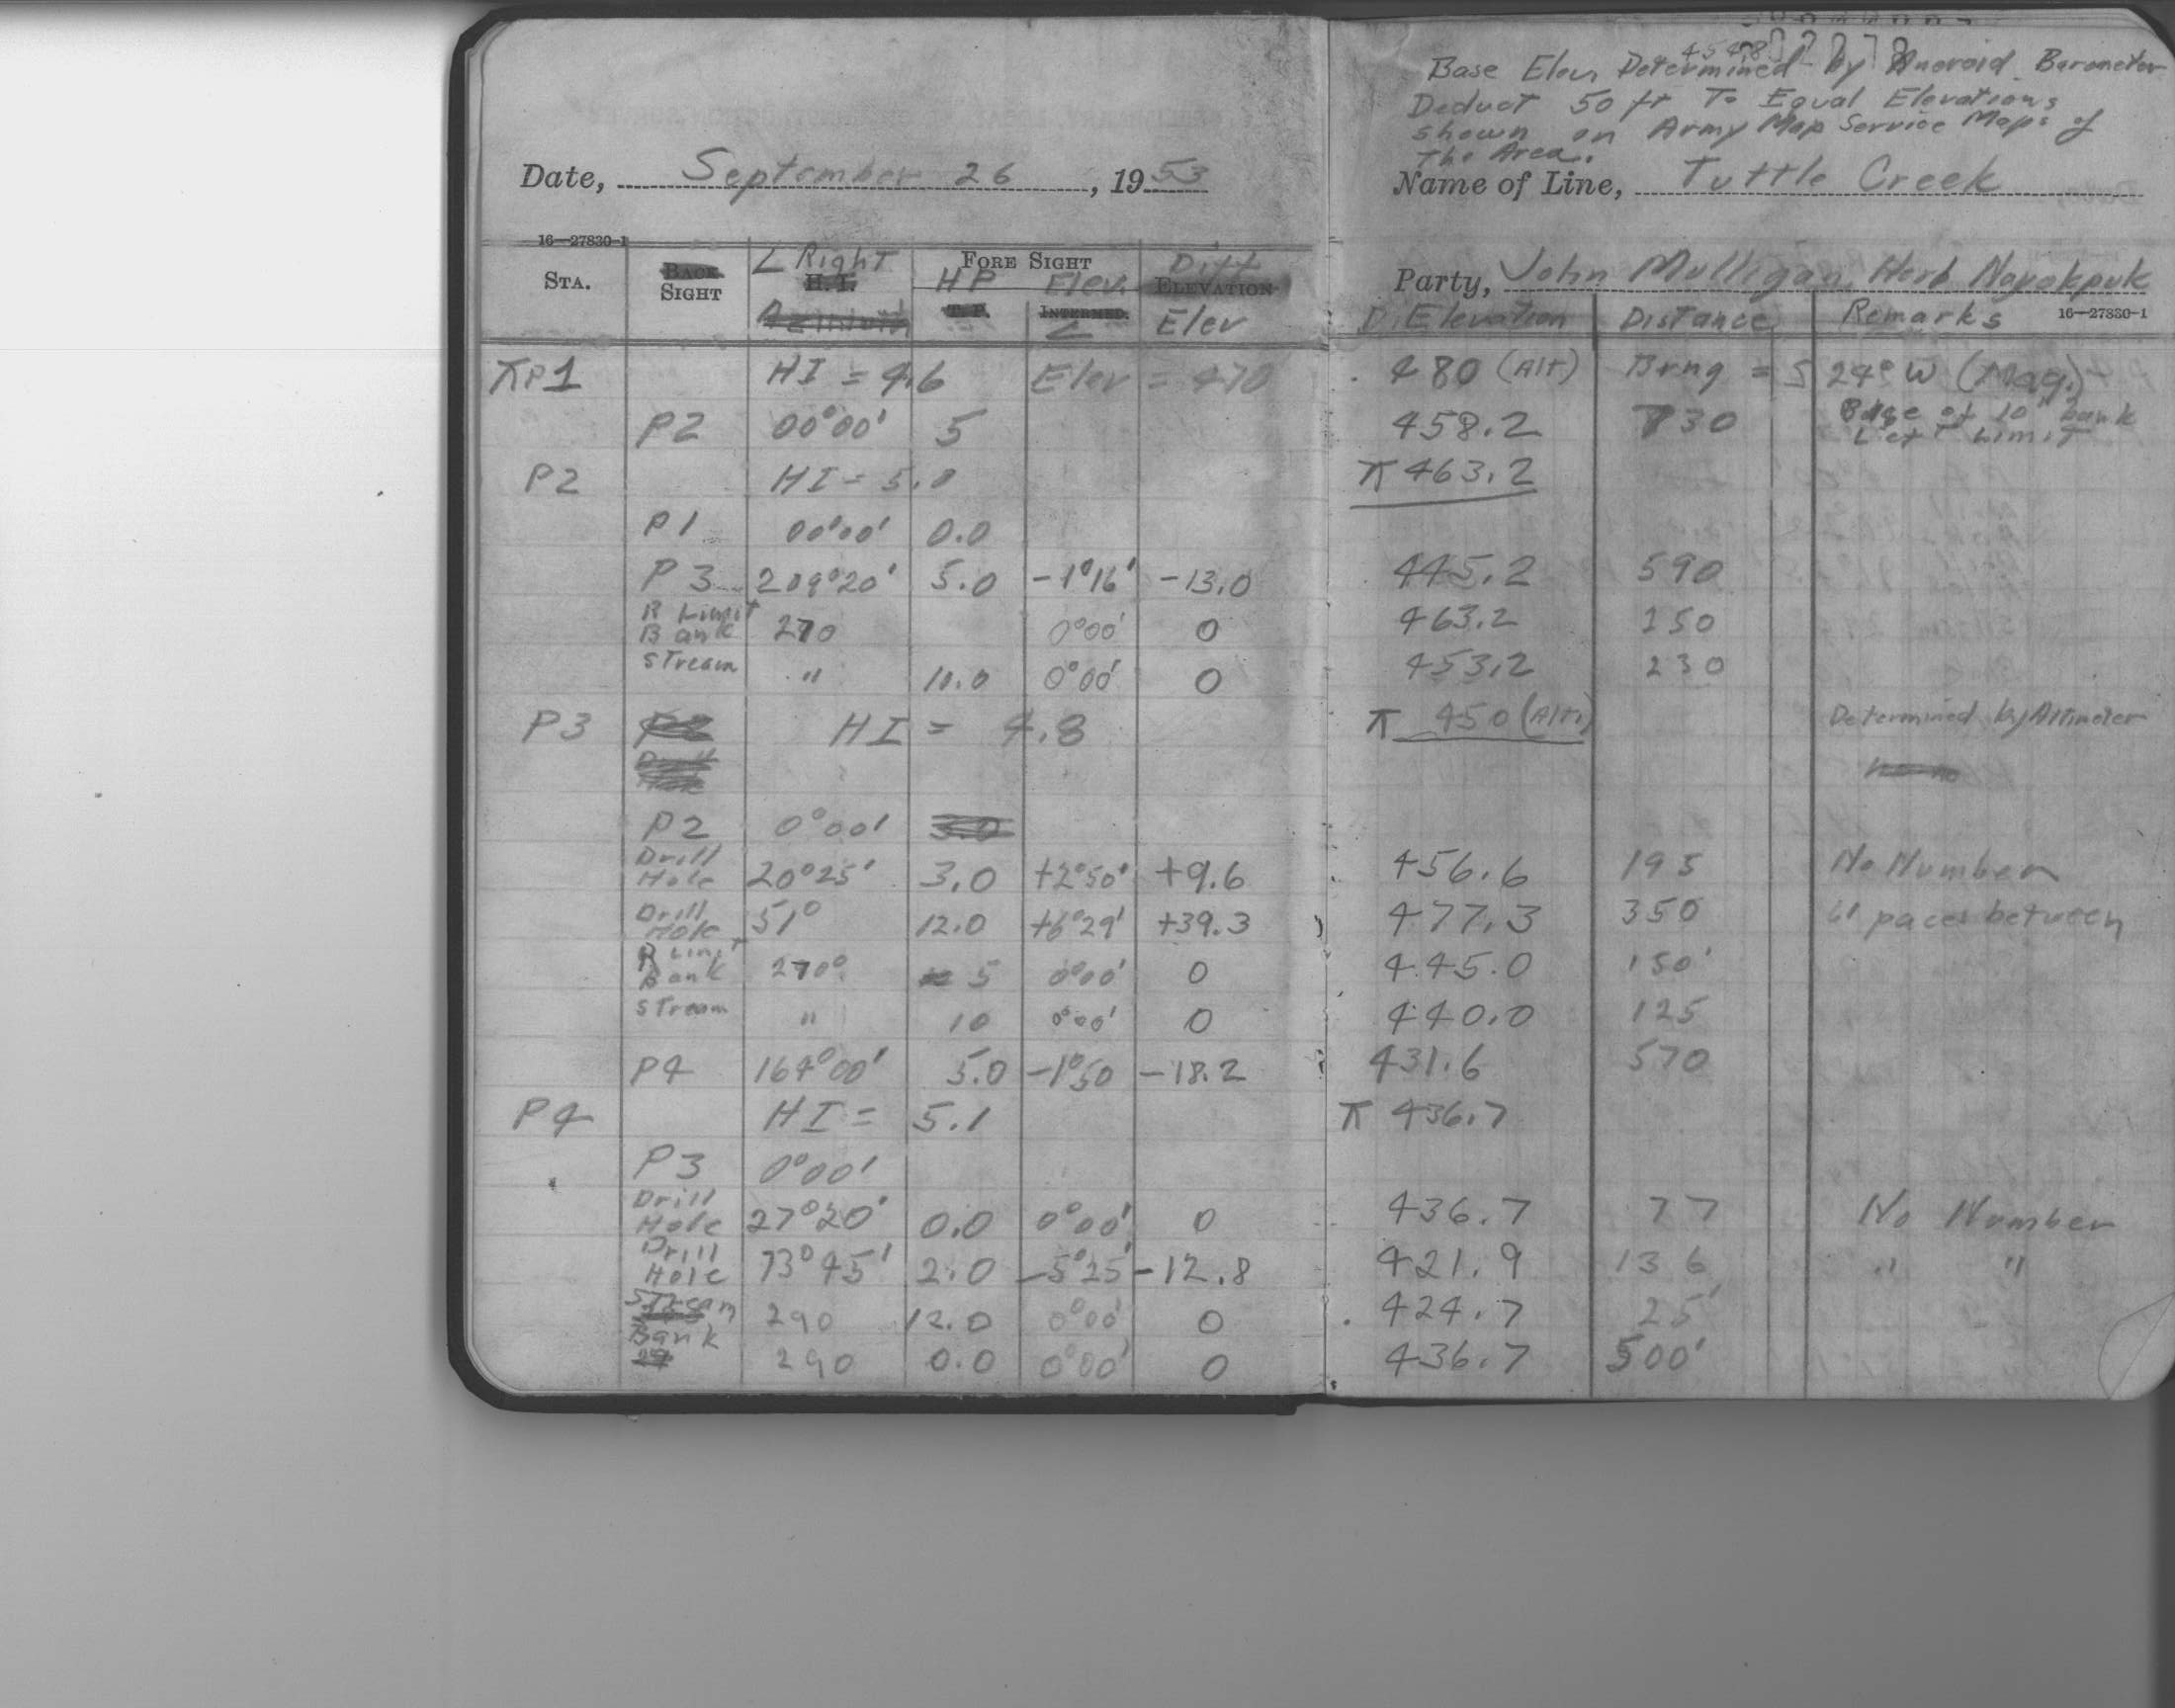 Date, September 26, 1953
16—27830-1
STA. BACK SIGHT ∠ Right H.I. FORE SIGHT HP T.P. Elev. INTERMED. ∠ Diff ELEVATION Elev
⊼P1 HI = 4.6 Elev = 470
P2 00°00' 5
P2 HI = 5.0
P1 00°00' 0.0
P3 209°20' 5.0 -1°16' -13.0
R Limit Bank 270 0°00' 0
Stream " 10.0 0°00' 0
P3 HI = 4.8
P2 0°00'
Drill Hole 20°25' 3.0 +2°50' +9.6
Drill Hole 51° 12.0 +6°29' +39.3
R Limit Bank 270° 5 0°00' 0
Stream " 10 0°00' 0
P4 164°00' 5.0 -1°50 -18.2
P4 HI = 5.1
P3 0°00'
Drill Hole 27°20' 0.0 0°00' 0
Drill Hole 73°45' 2.0 -5°25' -12.8
Stream 290 12.0 0°00' 0
Bank 290 0.0 0°00' 0
Base Elev Determined by Aneroid Barometer
Deduct 50 ft To Equal Elevations
shown on Army Map Service Maps of
The Area.
Name of Line, Tuttle Creek
Party, John Mulligan, Herb Nayokpuk
Elevation Distance Remarks 16—27830-1
480 (Alt) Brng = S 24° W (Mag.)
458.2 730 Base of 10' bank
Left Limit
⊼ 463.2
445.2 590
463.2 250
453.2 230
⊼ 450 (Alt.) Determined by Altimeter
456.6 195 No Number
477.3 350 61 paces between
445.0 150'
440.0 125
431.6 570
⊼ 436.7
436.7 77 No Number
421.9 136 " "
424.7 25'
436.7 500'